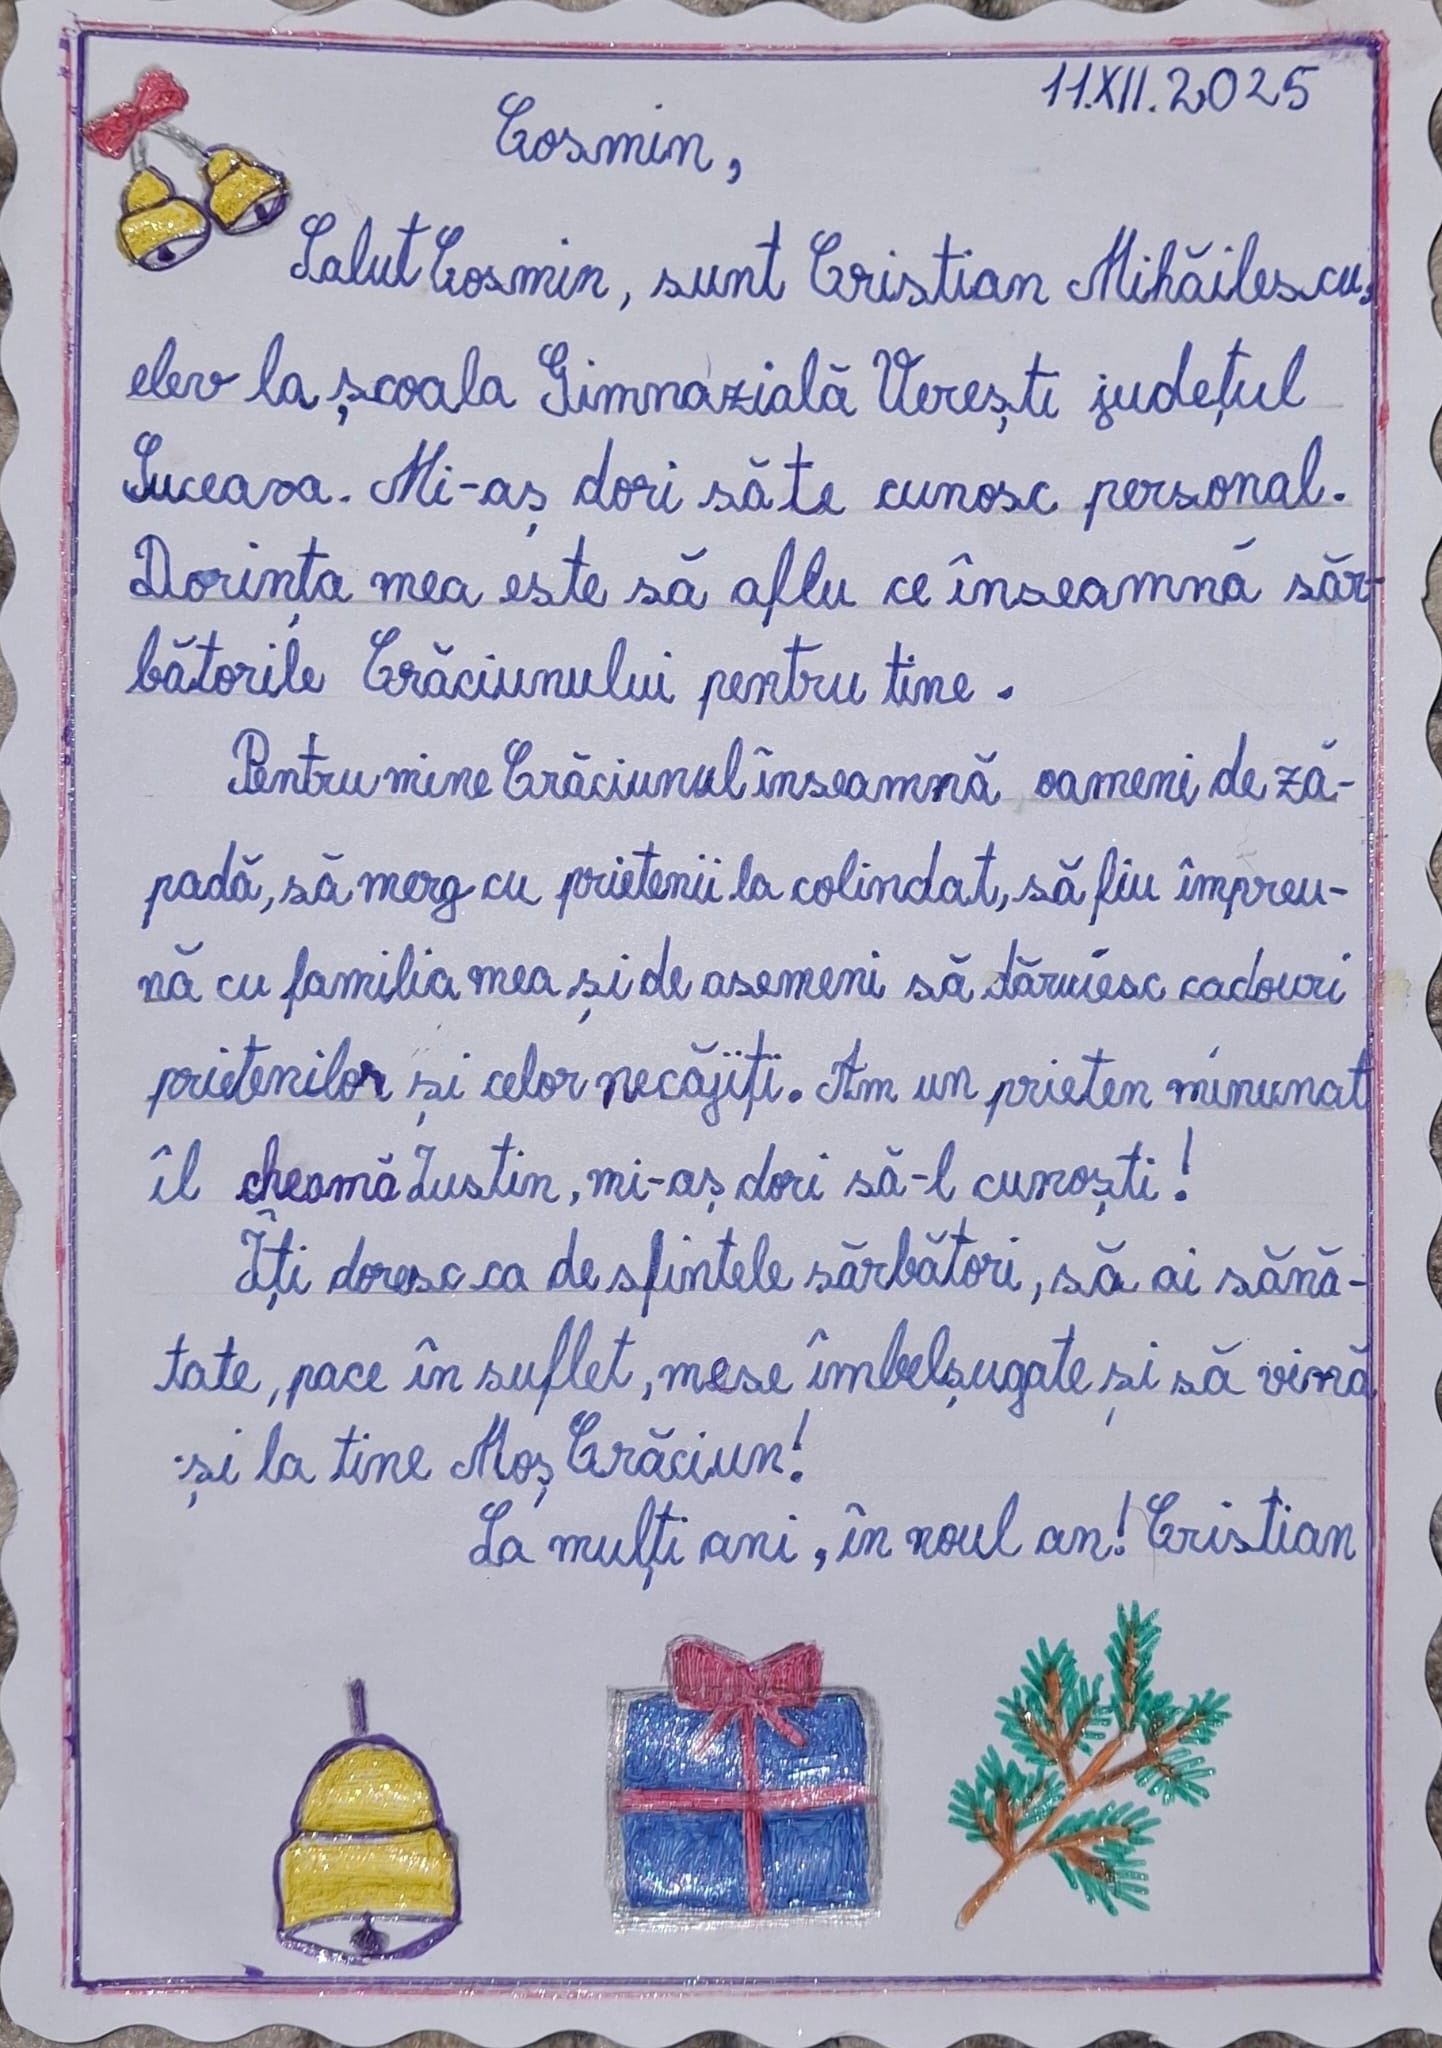 11.XII.2025
Cosmin,
Salut Cosmin, sunt Cristian Mihăilescu,
elev la școala Gimnazială Verești județul
Suceava. Mi-aș dori să te cunosc personal.
Dorința mea este să aflu ce înseamnă săr-
bătorile Crăciunului pentru tine.
Pentru mine Crăciunul înseamnă oameni de ză-
padă, să merg cu prietenii la colindat, să fiu împreu-
nă cu familia mea și de asemeni să dăruiesc cadouri
prietenilor și celor necăjiți. Am un prieten minunat
îl cheamă Iustin, mi-aș dori să-l cunoști!
Îți doresc ca de sfintele sărbători, să ai sănă-
tate, pace în suflet, mese îmbelșugate și să vină
și la tine Moș Crăciun!
La mulți ani, în noul an! Cristian